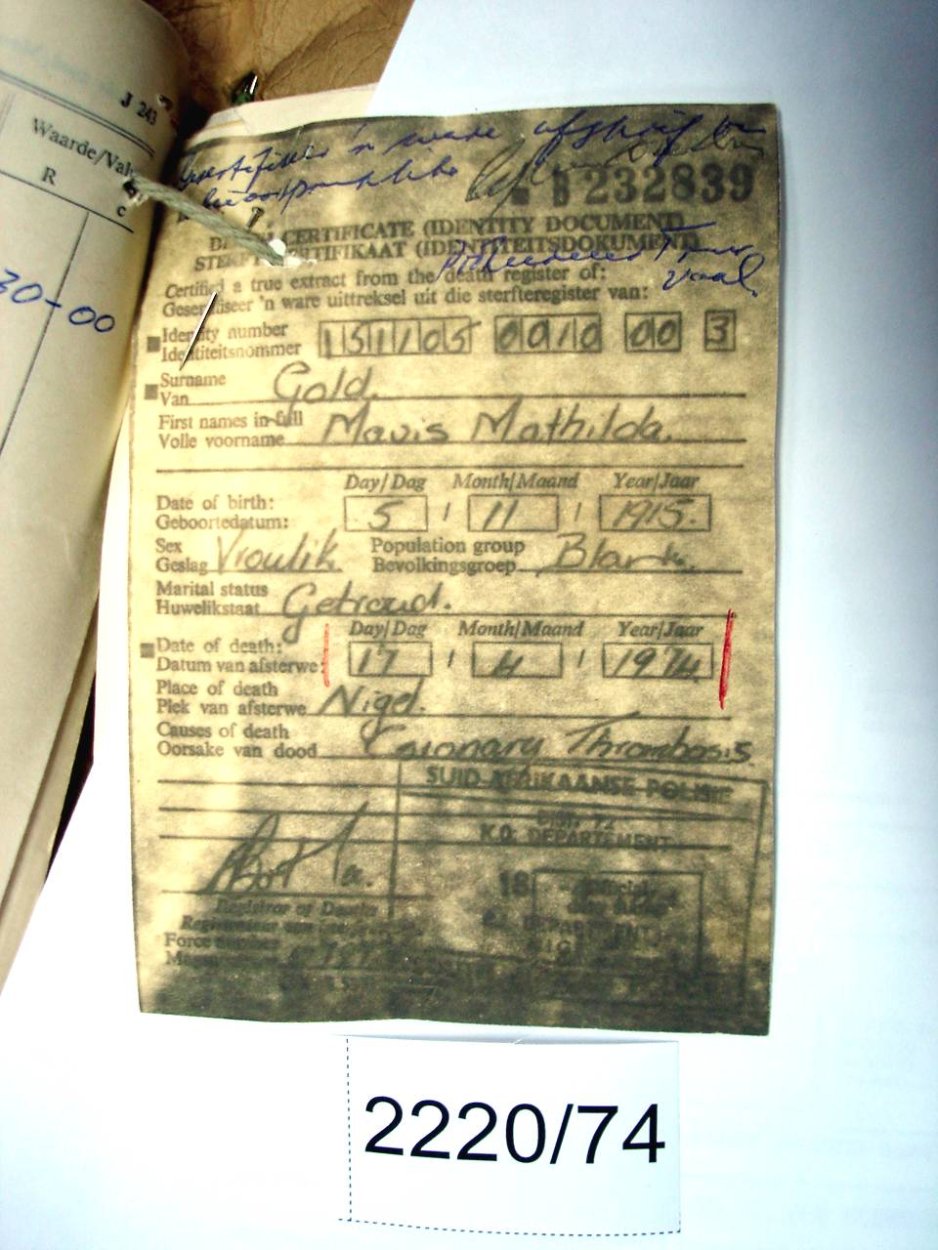 J 243
Waarde/Val
R
c
30-00
Gesertifiseer 'n ware afskrif van
oorspronklike
B 232839
CERTIFICATE (IDENTITY DOCUMENT)
STERFTESERTIFIKAAT (IDENTITEITSDOKUMENT)
Certified a true extract from the death register of:
Gesertifiseer 'n ware uittreksel uit die sterfteregister van:
Vaal.
Identity number
Identiteitsnommer 151105 0010 00 3
Surname
Van Gold.
First names in full
Volle voorname Mavis Mathilda.
Day/Dag Month/Maand Year/Jaar
Date of birth:
Geboortedatum: 5 / 11 / 1915.
Sex Population group
Geslag Vroulik. Bevolkingsgroep Blank.
Marital status
Huwelikstaat Getroud.
Day/Dag Month/Maand Year/Jaar
Date of death:
Datum van afsterwe: 17 / 4 / 1974
Place of death
Plek van afsterwe Nigel.
Causes of death
Oorsake van dood Coronary Thrombosis
SUID-AFRIKAANSE POLISIE
K.O. DEPARTEMENT
18
Registrar of Deaths
Force number
2220/74